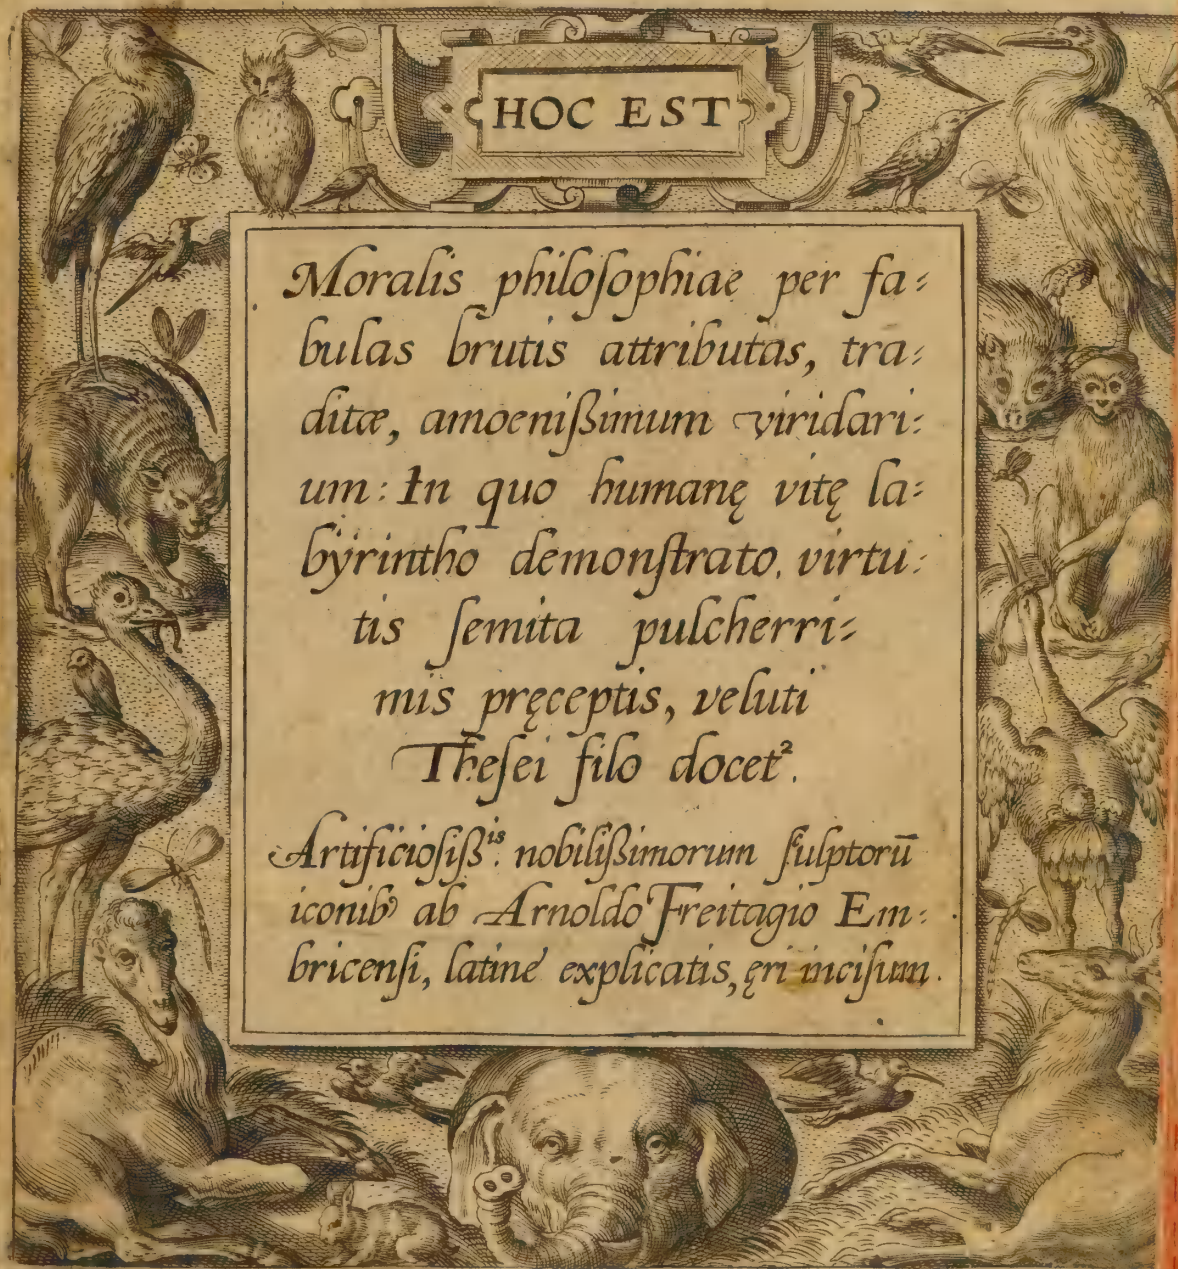 HOC EST
Moralis philoſophiae per fa:
bulas brutis attributas, tra:
ditæ, amoenißimum viridari:
um: In quo humanę vitę la:
byrintho demonſtrato, virtu:
tis ſemita pulcherri:
mis pręceptis, veluti
Theſei filo docet².
Artificioſiß.ⁱˢ nobilißimorum ſculptorū
iconibꝰ ab Arnoldo Freitagio Em:
bricenſi, latinè explicatis, ęri inciſum.